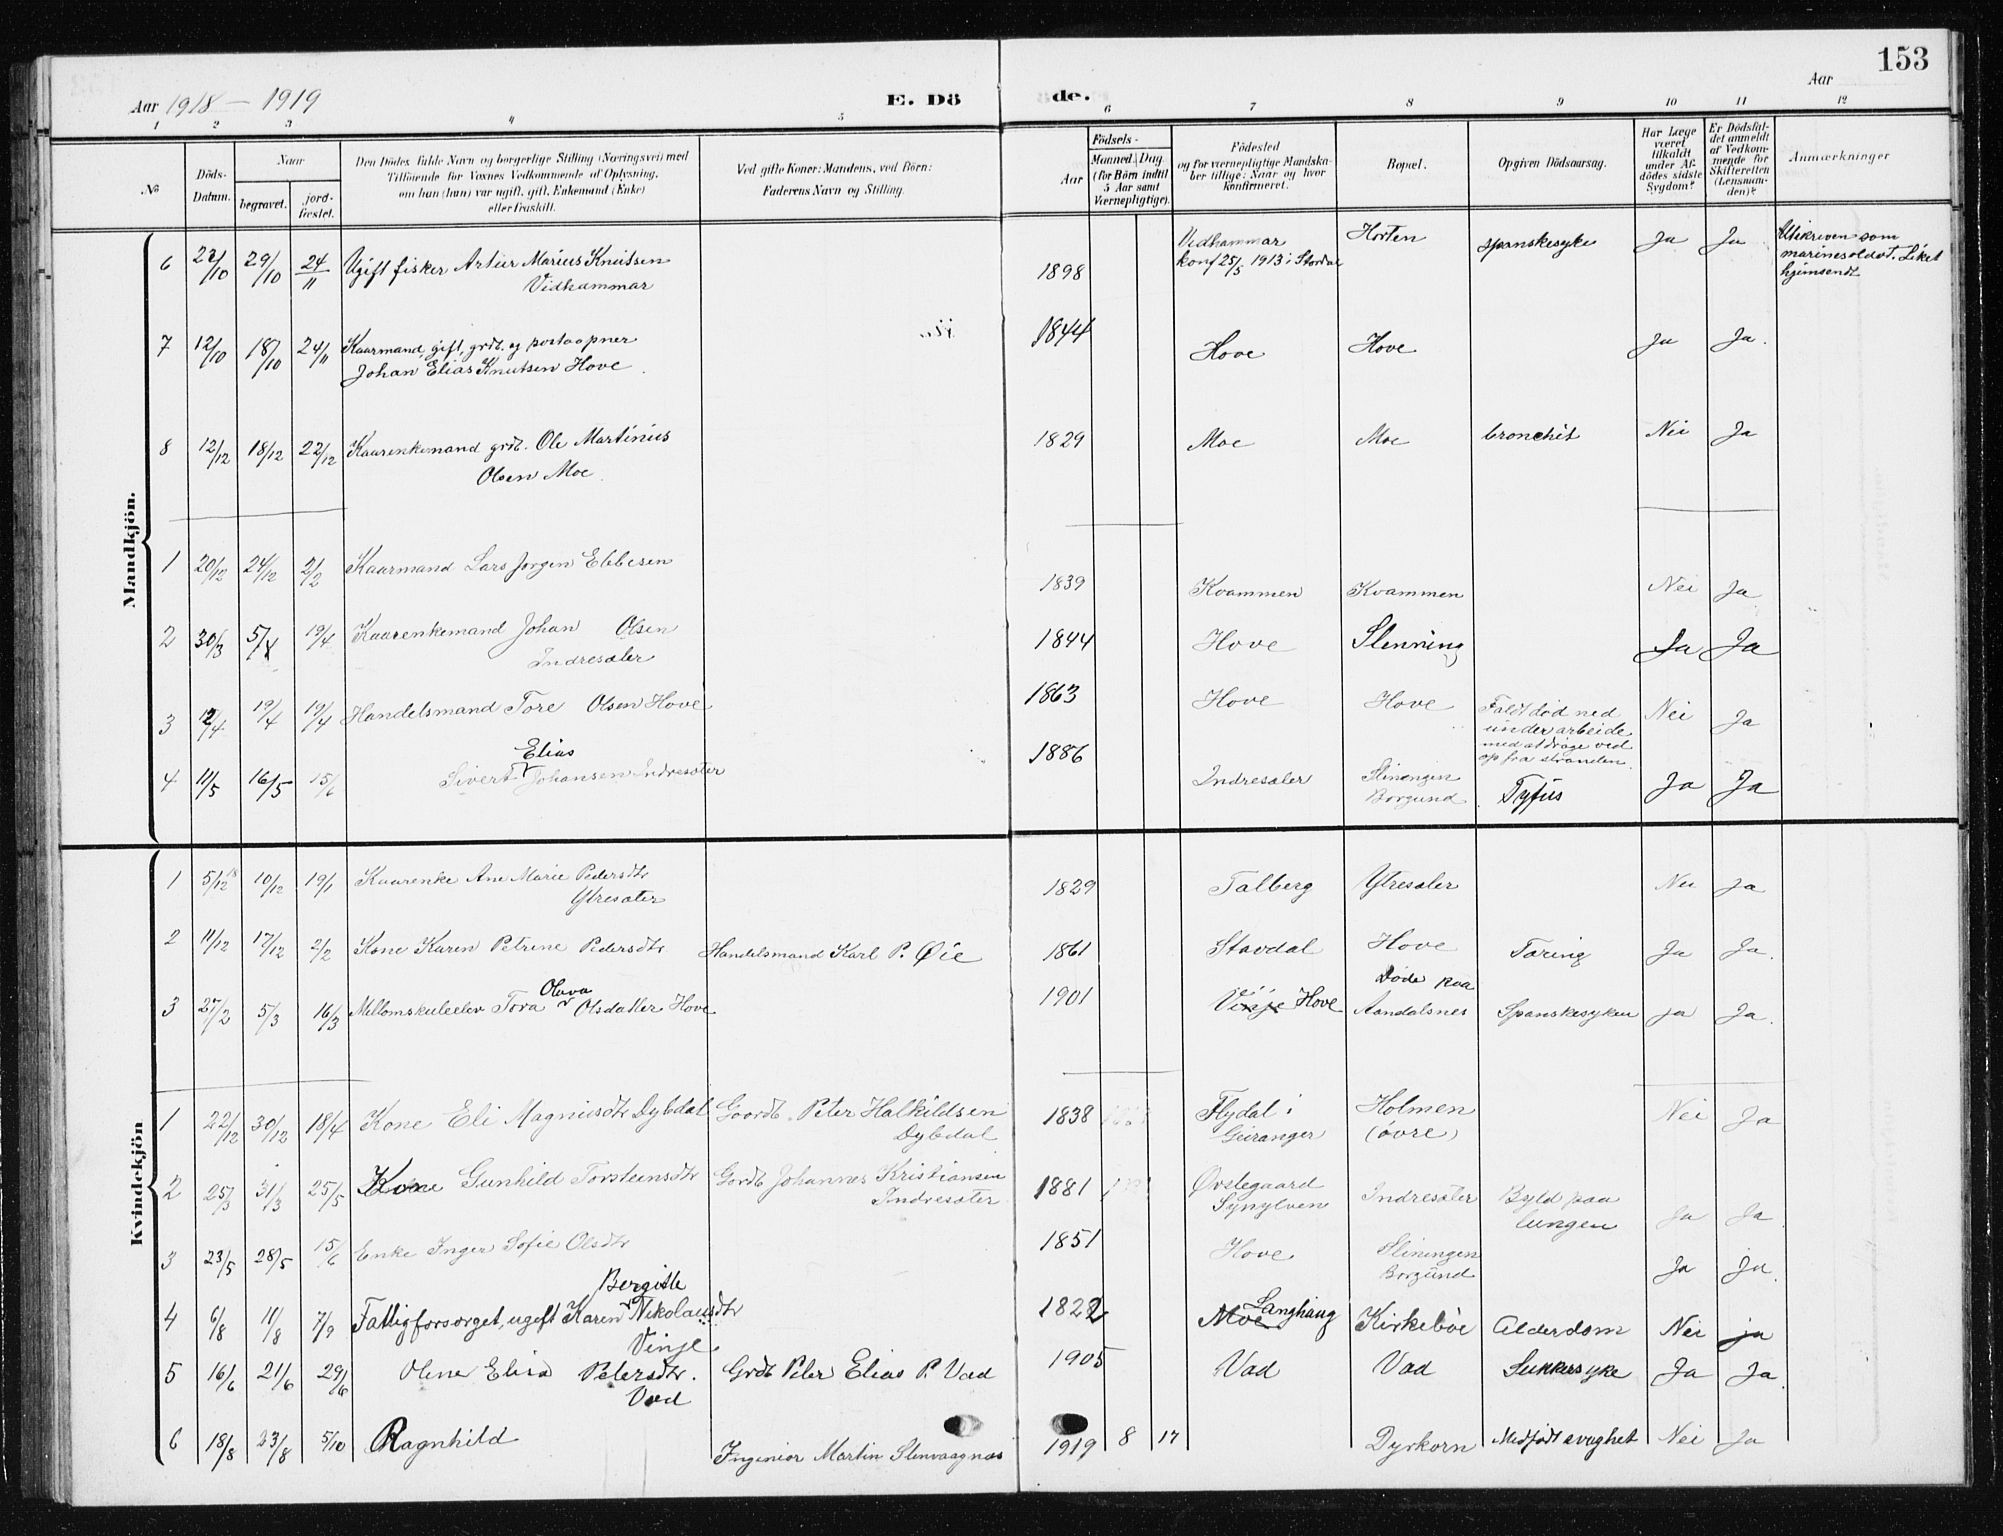 153
Aar 1918 – 1919
E. Dö
de.
Aar
1 2 3 4 5 6 7 8 9 10 11 12
No
Döds-
Datum.
Naar
begravet.
jord-
fæstet.
Den Dödes fulde Navn og borgerlige Stilling (Næringsvei) med
Tilföiende for Voxnes Vedkommende af Oplysning,
om han (hun) var ugift, gift, Enkemand (Enke)
eller fraskilt.
Ved gifte Koner: Mandens, ved Börn:
Faderens Navn og Stilling.
Födsels-
Aar
Maaned. Dag.
(for Börn indtil
5 Aar samt
Værnepligtige).
Födested
og for værnepligtige Mandska-
ber tillige: Naar og hvor
konfirmeret.
Bopæl.
Opgiven Dödsaarsag.
Har Læge
været
tilkaldt
under Af-
dödes sidste
Sygdom?
Er Dödsfal-
det anmeldt
af Vedkom-
mende for
Skifteretten
(Lensman-
den)?
Anmærkninger
Mandkjön.
6 22/10 29/10 24/11 Ugift fisker Artur Marius Knutsen
Vidhammar
1898 Vidhammar
konf 25/5 1913 i Stordal
Horten spanskesyke Ja Ja Utskreven som
marinesoldat. Liket
hjemsendt
7 12/10 18/10 24/11 Kaarmand, gift, grdb. og postaapner
Johan Elias Knutsen Hove.
1844 Hove Hove Ja Ja.
8 12/12 18/12 22/12 Kaarenkemand grdb. Ole Martinus
Olsen Moe.
1829 Moe Moe bronchit Nei Ja
1 20/12 24/12 2/2 Kaarmand Lars Jørgen Ebbesen
1839 Kvammen Kvammen Nei Ja
2 30/3 5/4 19/4 Kaarenkemand Johan Olsen
Indresæter
1844 Hove Slenning Ja Ja
3 12/4 19/4 19/4 Handelsmand Tore Olsen Hove
1863 Hove Hove Faldt død ned
under arbeide
med at drage ved
op fra stranden.
Nei Ja
Elias
4 11/5 16/5 15/6 Sivert Johansen Indresæter
1886 Indresæter Sliningen
Borgund
Tyfus Ja Ja
Kvindekjön
1 5/12 18 10/12 19/1 Kaarenke Ane Marie Pedersdtr
Ytresæter
1829 Talberg Ytresæter Nei Ja
2 11/12 17/12 2/2 Kone Karen Petrine Pedersdtr Handelsmand Karl P. Øie
1861 Stordal Hove Tæring Ja Ja.
Olava
3 27/2 5/3 16/3 Mellomskuleelev Tora Olsdatter Hove
1901 Vinje Hove Døde paa
Aandalsnes Spanskesyken Ja Ja.
1 22/12 30/12 18/4 Kone Eli Magnusdtr Dybdal Gaardb. Peter Halkildsen
Dybdal
1838 Flydal i
Geiranger
Holmen
(øvre)
Nei Ja
2 25/3 31/3 25/5 Kone Gunhild Torsteinsdtr Gardb Johannes Kristiansen
Indresæter
1881 Øvstegaard
Synylven
Indresæter Byld paa
lungen
Ja Ja.
3 23/5 28/5 15/6 Enke Inger Sofie Olsdtr
1851 Hove Sliningen
Borgund
Ja Ja.
Bergitte
4 6/8 11/8 7/9 Fattigforsørget, ugift Karen Nikolausdtr
Vinje
1822 Moe Langhaug Kirkebøe Alderdom Nei ja
5 16/6 21/6 29/6 Oline Elisa Petersdtr.
Vad
Grdb Peter Elias P. Vad
1905 Vad Vad Sukkersyke Ja Ja.
6 18/8 23/8 5/10 Ragnhild
Ingeniør Martin Stenvaagnæs
1919 8 17 Dyrkorn Medfødt svaghet Nei Ja